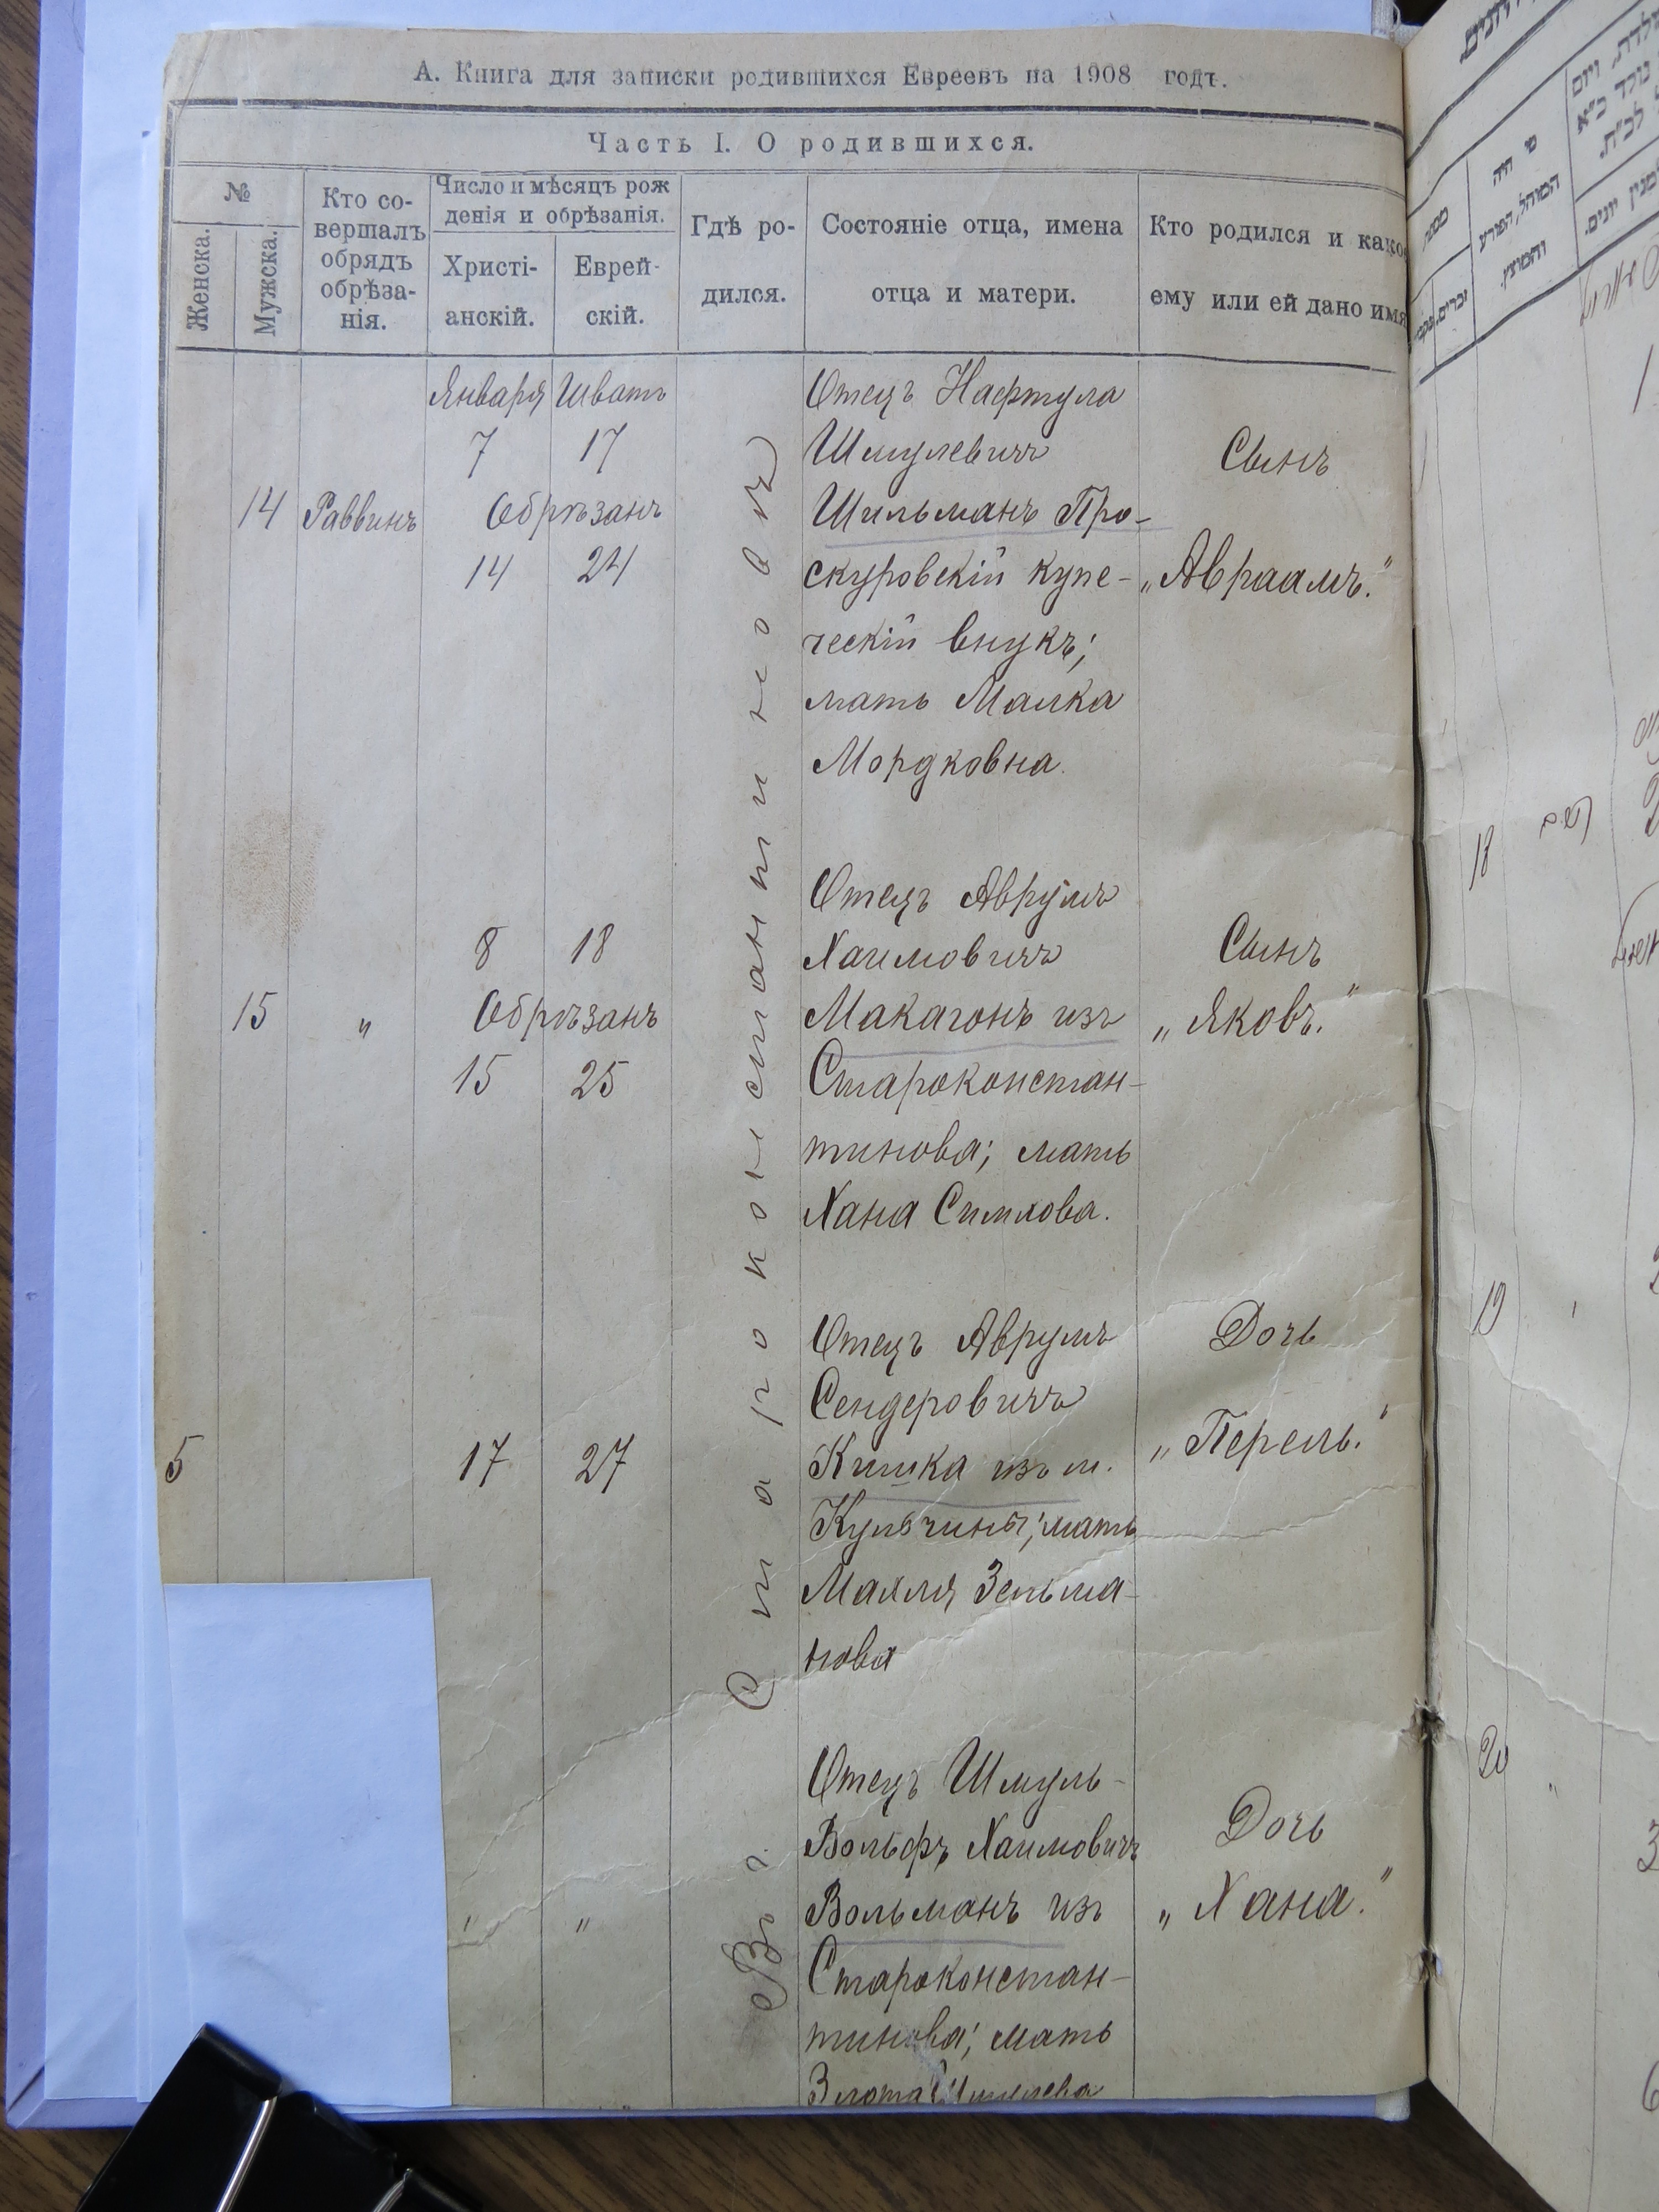 А. Книга для записки родившихся Евреевъ на 1908 годъ.
Часть I. О родившихся.
№
Женска.
Мужска.
Кто со-
вершалъ
обрядъ
обрѣза-
нія.
Число и мѣсяцъ рож
денія и обрѣзанія.
Христі-
анскій.
Еврей-
скій.
Гдѣ ро-
дился.
Состояніе отца, имена
отца и матери.
Кто родился и како
ему или ей дано имя
Въ г. Староконстантиновѣ
14
Раввинъ
Января Шватъ
7 17
Обрѣзанъ
14 24
Отецъ Нафтула
Шмулевичъ
Шильманъ Про-
скуровскій купе-
ческій внукъ;
мать Малка
Мордковна.
Сынъ
„Авраамъ."
15
"
8 18
Обрѣзанъ
15 25
Отецъ Аврумъ
Хаимовичъ
Макагонъ изъ
Староконстан-
тинова; мать
Хана Симхова.
Сынъ
„Яковъ."
5
17 27
Отецъ Аврумъ
Сендеровичъ
Кишка изъ м.
Кульчины; мать
Махля Зельма-
нова
Дочь
„Перель."
" "
Отецъ Шмуль-
Вольфъ Хаимовичъ
Вольманъ изъ
Староконстан-
тинова; мать
Злота
Дочь
„Хана."
מי היה
המוהל, הפורע
והמוצץ.
זכרים.
18
19
20